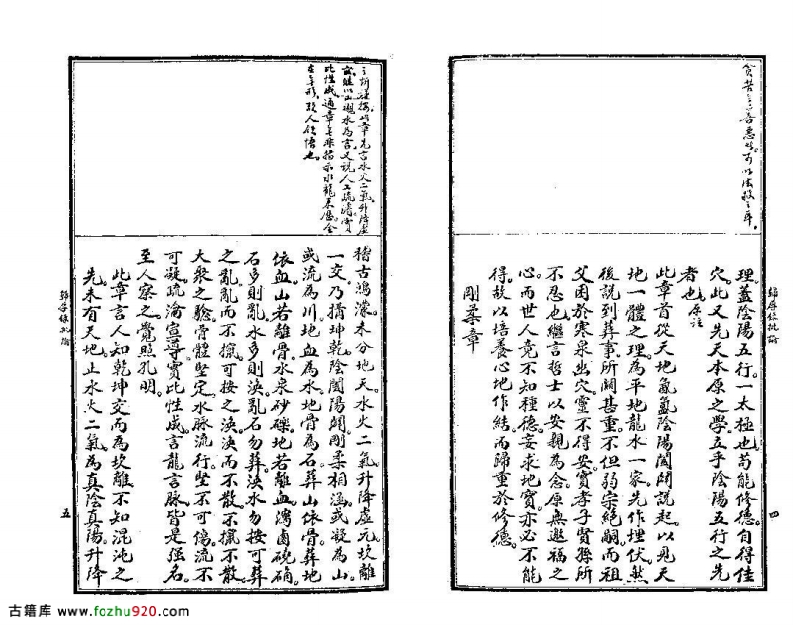 貪昔之善惡此可以法救之耳
理蓋陰陽五行一太極也苟能修德自得佳
穴此又先天本原之學立乎陰陽五行之先
者也原註
此章首從天地氤氳陰陽闔闢說起以見天
地一體之理為平地龍水一家先作埋伏然
後說到葬事所關甚重不但弱宗絕嗣而祖
父困於寒泉出穴靈不得安實孝子賢孫所
不忍也繼言哲士以安親為念原無邀福之
心而世人竟不知種德妄求地寶亦必不能
得故以培養心地作結而歸重於修德
剛柔章
歸厚錄批論
四
之所種按此章先言水火二氣升降虛
以山龍水為言又說人工疏濬實
此性成通章
在無形致人領悟也
稽古鴻濛未分地天水火二氣升降虛元坎離
一交乃搆坤乾陰闔陽闢剛柔相涵或凝為山
或流為川地血為水地骨為石葬山依骨葬地
依血山若離骨水泉砂礫地若離血瀉鹵磽确
石多則亂水多則泱亂石勿葬泱水勿按可葬
之亂亂而不攛可按之泱泱而不散不攛不散
大聚之驗骨體堅定水脈流行堅不可傷流不
可凝疏瀹宣導實比性成言龍言脈皆是強名
至人察之覺照孔明
此章言人知乾坤交而為坎離不知混沌之
先未有天地止水火二氣為真陰真陽升降
歸厚錄批論
五
古籍库 www.fczhu920.com